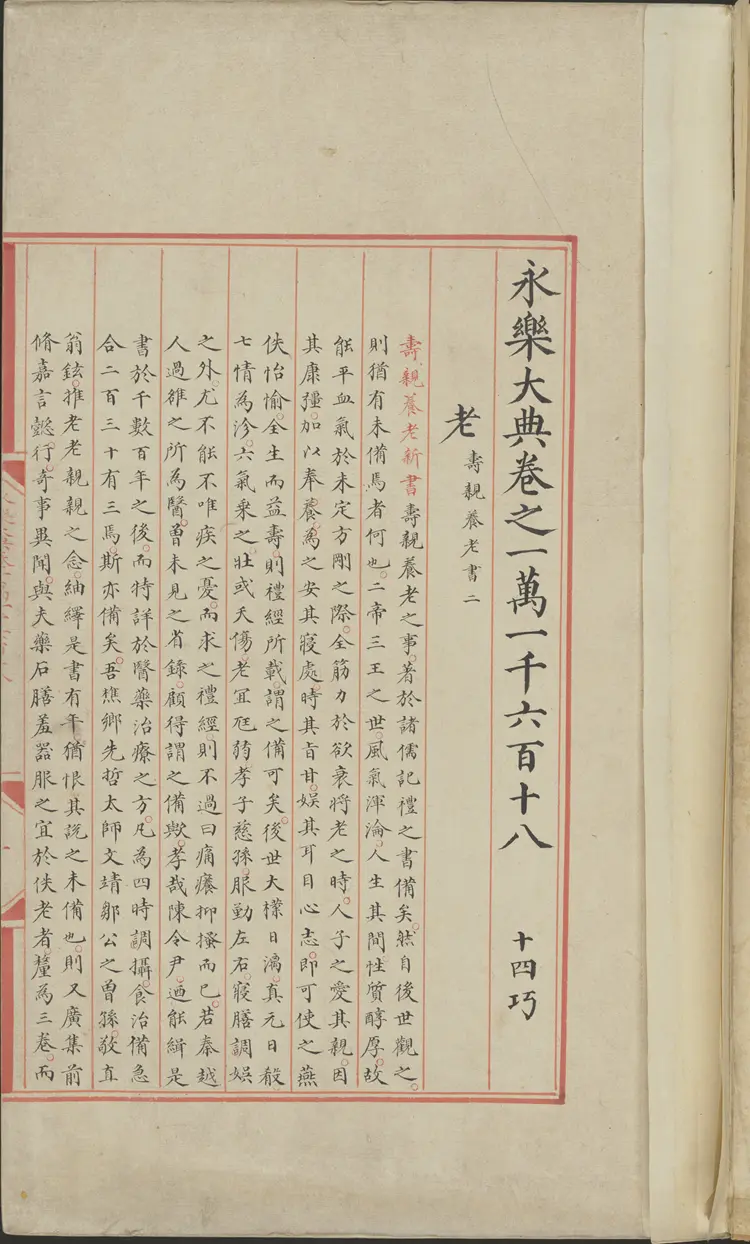 永樂大典卷之一萬一千六百十八
十四巧
老
壽親養老書二
壽親養老新書壽親養老之事。著於諸儒記禮之書備矣。然自後世觀之。
則猶有未備焉者何也。二帝三王之世。風氣渾淪。人生其間。性質醇厚。故
能平血氣於未定方剛之際。全筋力於欲衰將老之時。人子之愛其親。因
其康彊。加以奉養。為之安其寢處。時其旨甘。娛其耳目心志。即可使之燕
佚怡愉。全生而益壽。則禮經所載。謂之備可矣。後世大樸日漓。真元日殽
七情為沴。六氣乘之。壯或夭傷。老宜尫弱。孝子慈孫。服勤左右。寢膳調娛
之外。尤不能不唯疾之憂。而求之禮經。則不過曰痛癢抑搔而已。若秦越
人過雒之所為醫。曾未見之省錄。顧得謂之備歟。孝哉陳令尹。迺能緝是
書於千數百年之後。而特詳於醫藥治療之方。凡為四時調攝。食治備急
合二百三十有三焉。斯亦備矣。吾樵鄉先哲太師文靖鄒公之曾孫。敬直
翁鉉。推老老親親之念。紬繹是書有年。猶恨其說之未備也。則又廣集前
脩嘉言懿行。奇事異聞。與夫藥石膳羞器服之宜於佚老者。釐為三卷。而